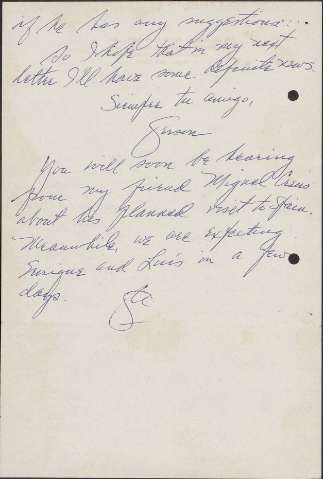 if he has any suggestions...
So I hope that in my next
letter I'll have some definite news.
Siempre tu amigo,
You will soon be hearing
from my friend Miguel
about his planned visit to Spain.
Meanwhile, we are expecting
Enrique and Luis in a few
days.